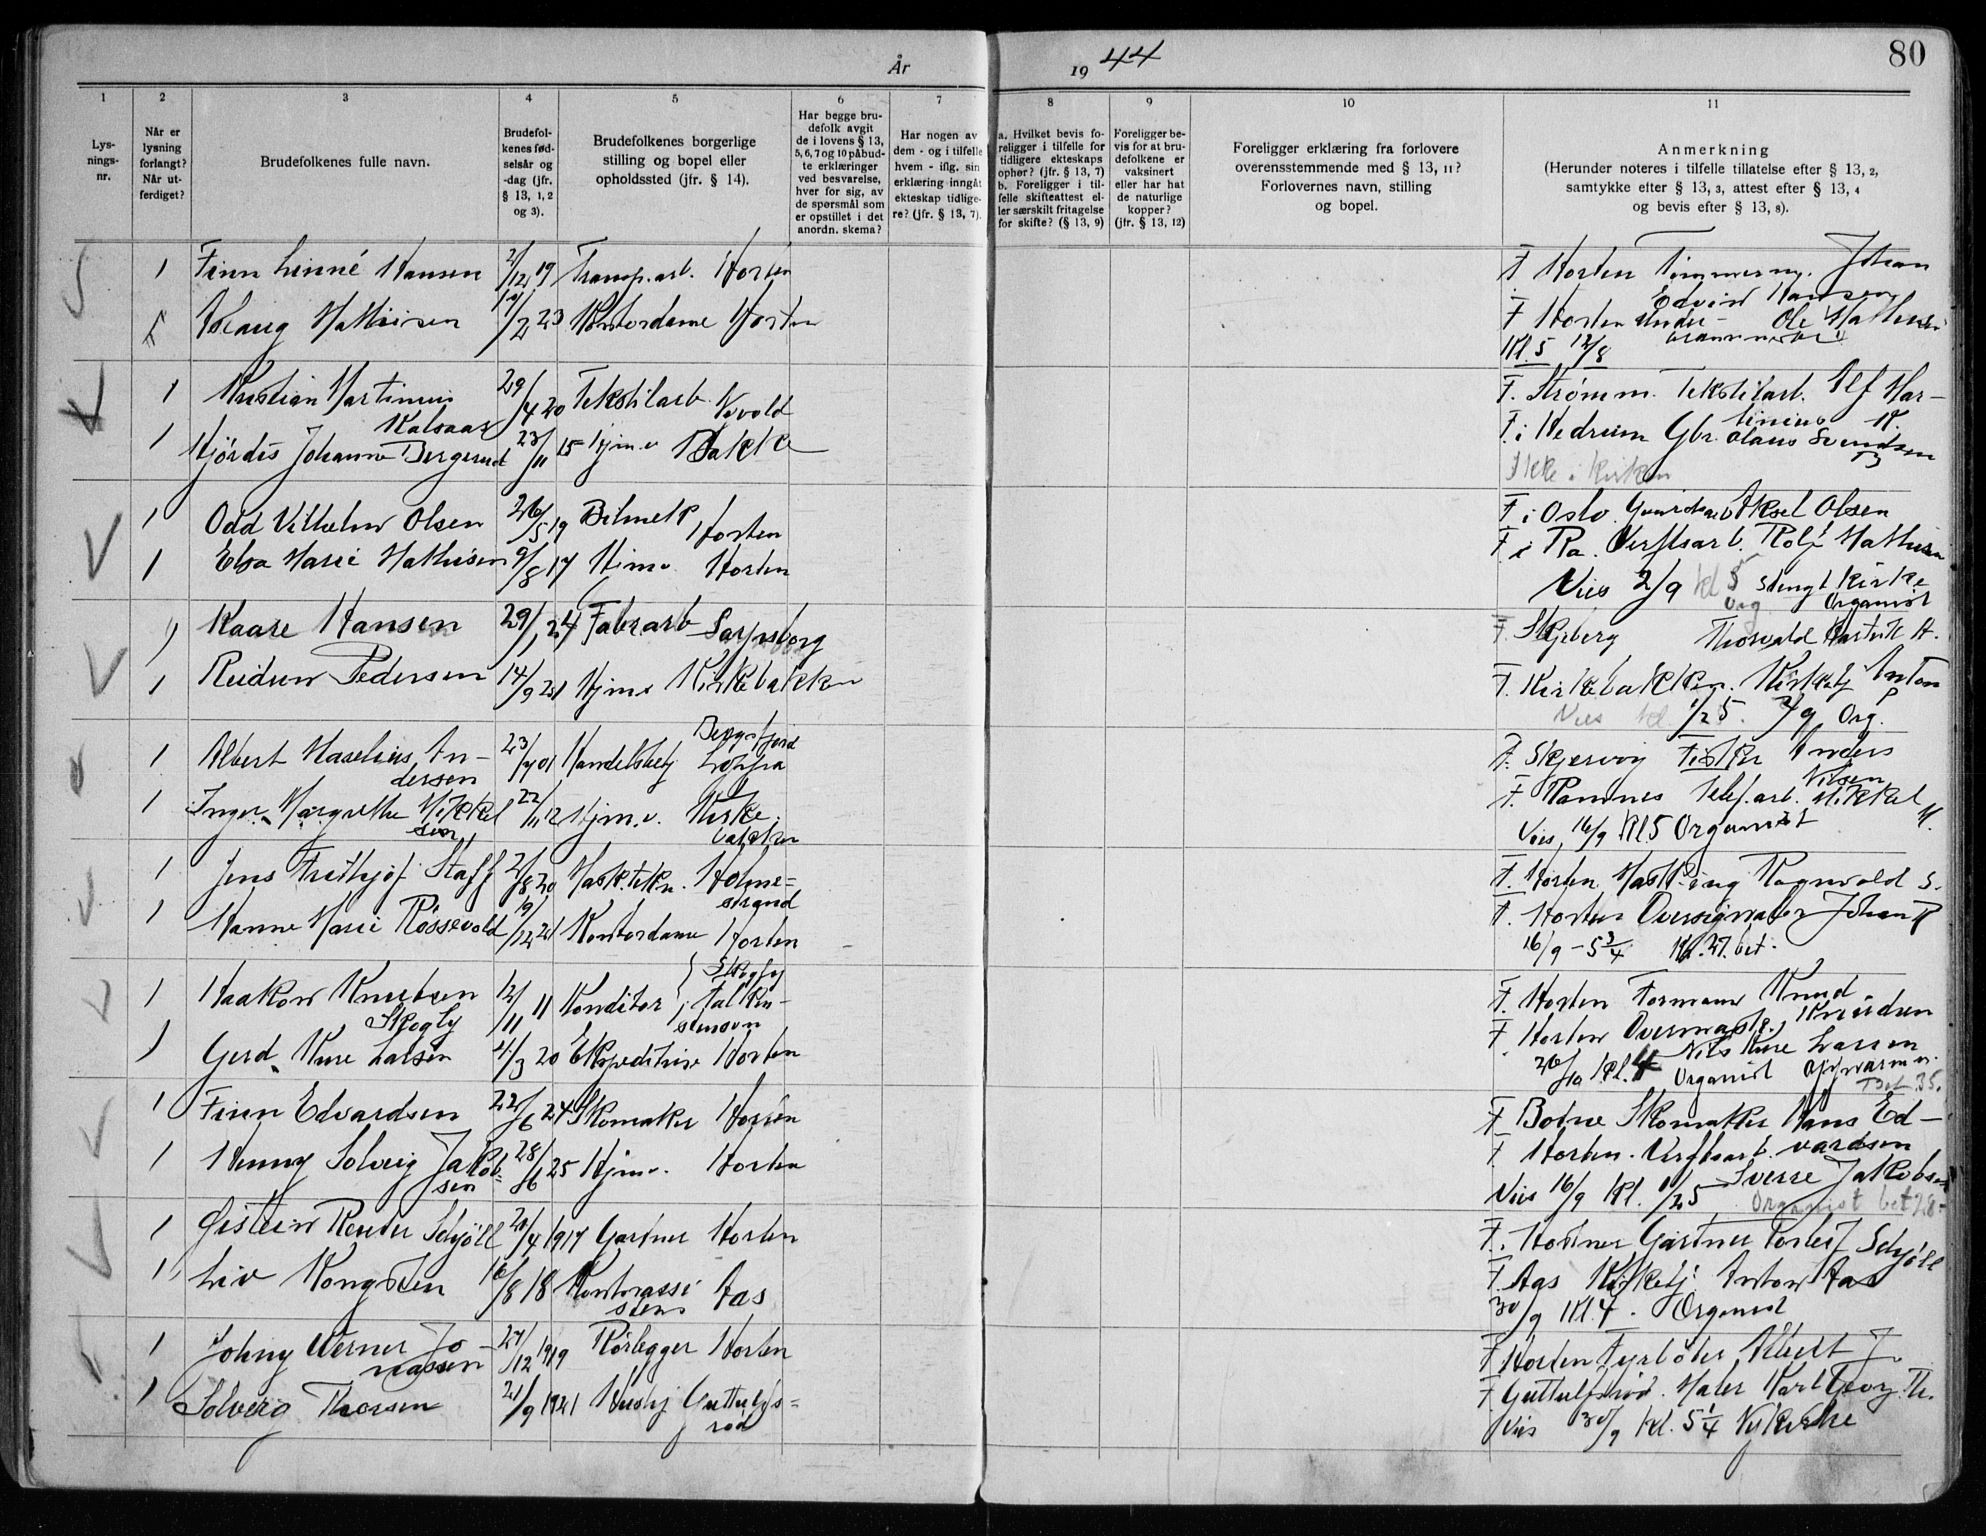 År 1944
80
1 2 3 4 5 6 7 8 9 10 11
Lys-
nings-
nr.
Når er
lysning
forlangt?
Når ut-
ferdiget?
Brudefolkenes fulle navn.
Brudefol-
kenes fød-
selsår og
-dag (jfr.
§ 13, 1, 2
og 3).
Brudefolkenes borgerlige
stilling og bopel eller
opholdssted (jfr. § 14).
Har begge bru-
defolk avgit
de i lovens § 13,
5, 6, 7 og 10 påbud-
te erklæringer
ved besvarelse,
hver for sig, av
de spørsmål som
er opstillet i det
anordn. skema?
Har nogen av
dem - og i tilfelle
hvem - iflg. sin
erklæring inngåt
ekteskap tidlige-
re? (jfr. § 13, 7).
a. Hvilket bevis fo-
religger i tilfelle for
tidligere ekteskaps
ophør? (jfr. § 13, 7)
b. Foreligger i til-
felle skifteattest el-
ler særskilt fritagelse
for skifte? (§ 13, 9)
Foreligger be-
vis for at bru-
defolkene er
vaksinert
eller har hat
de naturlige
kopper?
(jfr. § 13, 12)
Foreligger erklæring fra forlovere
overensstemmende med § 13, 11?
Forlovernes navn, stilling
og bopel.
Anmerkning
(Herunder noteres i tilfelle tillatelse efter § 13, 2,
samtykke efter § 13, 3, attest efter § 13, 4
og bevis efter § 13, 8).
1 Finn Linné Hansen 2/12 19 Transp.arb. Horten F Horten Tømmerm. Johan
Edvin Hansen
Aslaug Mathisen /2 23 Kontordame Horten F Horten Ole Mathisen
Kl. 5 12/8
1 Kristian Martinius 29/4 20 Tekstilarb. F. Strømm. Tekstilarb. Alf Mar-
tinius K.
1 Hjørdis Johanne Bergerud 23/11 15 Hjm.v Bakke F. i Hedrum Gbr. Olaus Svendsen
B
Ikke i kirken
1 Odd Vilhelm Olsen 26/5 19 Bilmek Horten F i Oslo Aksel Olsen
1 Elsa Marie Mathisen 9/8 17 Hjm.v. Horten F i Ra. Verftsarb. Rolf Mathisen
Vies 2/9 kl 5 stengt kirke
Organist
1 Kaare Hansen 29/1 24 Fabr.arb Sarpsborg F. Skjeberg Thorvald H.
1 Reidun Pedersen 14/9 21 Hjm.v Kirkebakken F. Kirkebakken. Kirketj Anton
P
Vies kl. 1/2 5. /9 Org.
1 Albert Haselius An-
dersen 23/7 01 Handelsbetj Bergsfjord
Loppa F. Skjervøy Fisker Anders
Nilsen
1 Inger Margrethe Mikkel
sen 22/11 12 Hjm.v. Kirke
bakken F. Ramnes Telef.arb. Mikkel
M.
Vies 16/9 Kl 5 Organist
1 Jens Fridthjof Staff 2/8 20 Mask.tekn. Holme-
strand F. Horten Mask.ing Ragnvald S.
1 Hanne Marie Røssevold 19/12 21 Kontordame Horten F. Horten Johan R
16/9 - 5 3/4 Kl. 27. bet.
1 Haakon Knudsen
Skogly 12/11 11 Konditor Skogly
Falken-
stensvn F. Horten Formann Knud
Knudsen
1 Gerd Kure Larsen /3 20 Ekspeditrise Horten F. Horten Overmask. Nils Kure Larsen
26/10 Kl. 4 Organist Oppvarm.
Bet 35.
1 Finn Edvardsen 22/6 24 Skomaker Horten F Botne Skomaker Hans Ed-
vardsen
1 Henny Solveig Jakob-
sen 28/6 25 Hjm.v. Horten F. Horten. Verftsarb. Sverre Jakobsen
Vies 16/9 Kl. 1/2 5 Organist bet 28-
1 Øistein Reuter Schjöll 20/4 1917 Gartner Horten F. Gartner Torleif Schjöll
1 Liv Kongsten 16/8 18 Kontorassi
stent Aas F. Aas Kirketj. Anton Aas
30/9 Kl 4. Organist
1 Johny Werner Jo-
nassen 27/12 1919 Rørlegger Horten F Horten Fyrbøter Albert J.
1 Solveig Thorsen 21/9 1921 Hushj Guttulfs-
rød F. Guttulfsrød. Maler Karl Georg Th.
Vies 30/9 Kl. 5 1/4 Nykirke